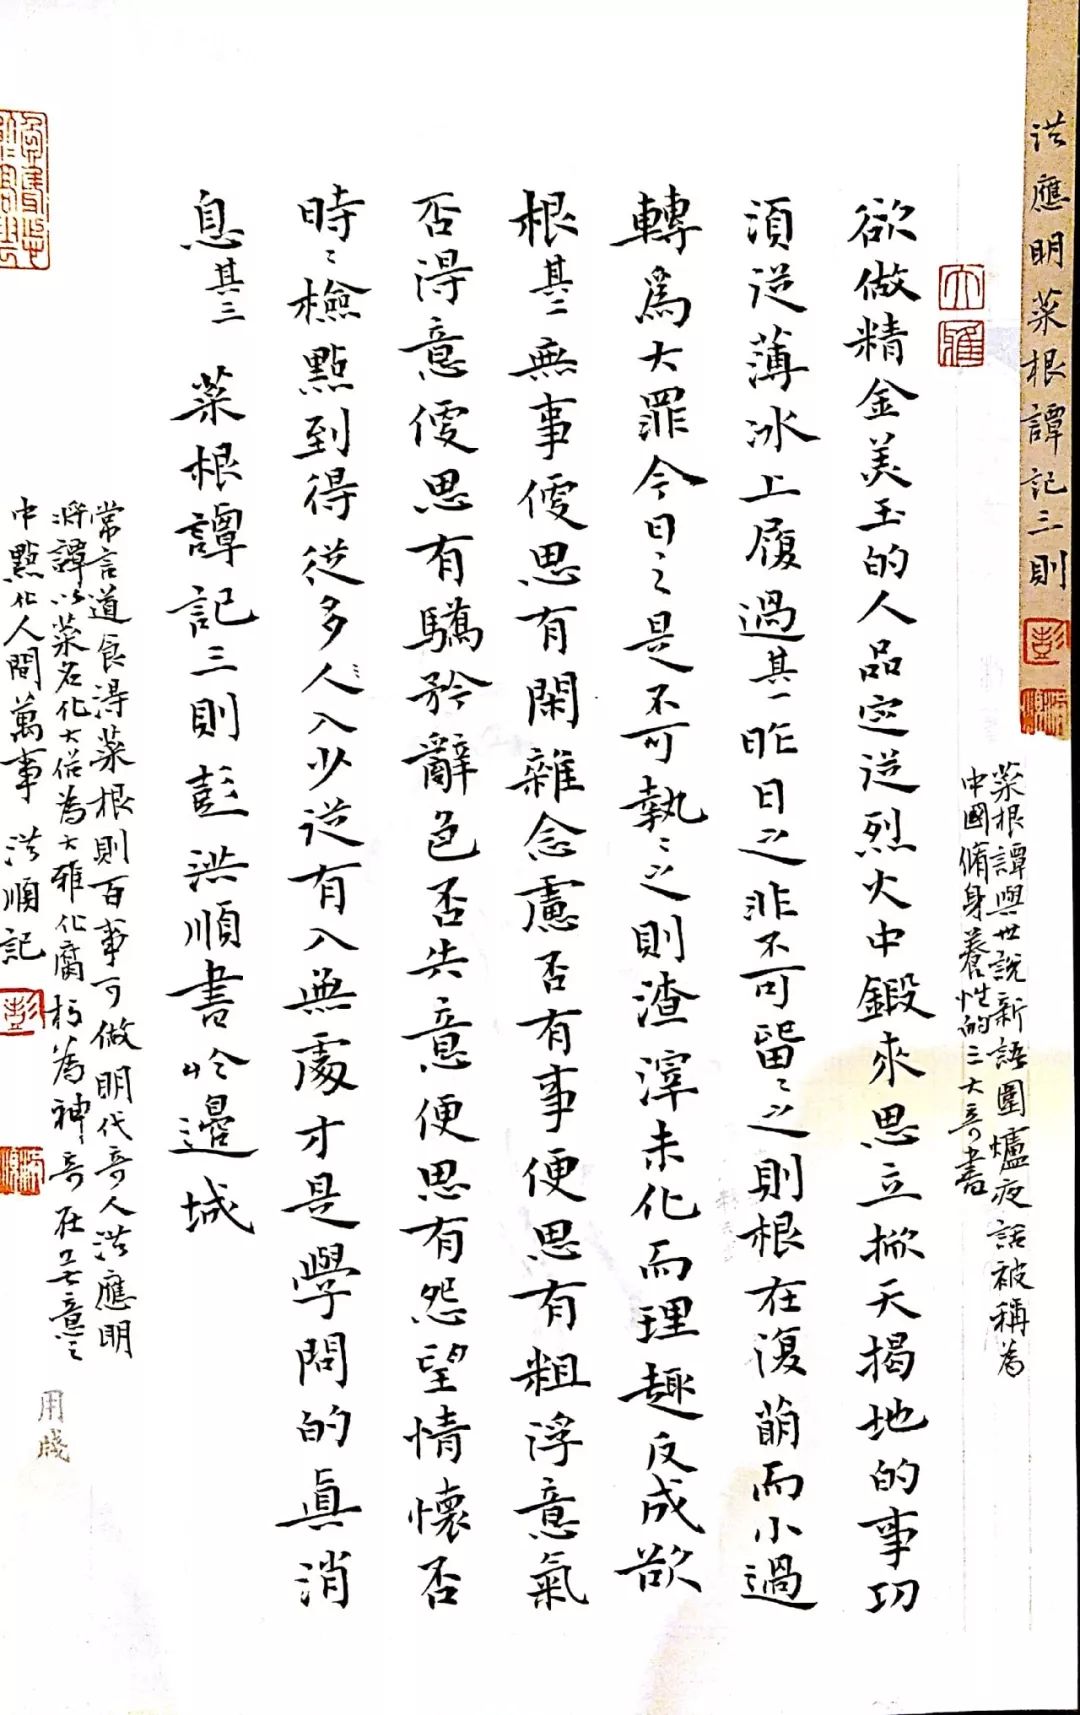 洪應明菜根譚記三則
菜根譚與世說新語圍爐夜話被稱為
中國脩身養性的三大奇書
大雅
欲做精金美玉的人品定從烈火中鍛來思立掀天揭地的事功
須從薄冰上履過其一昨日之非不可留〻之則根在復萌而小過
轉為大罪今日之是不可執〻之則渣滓未化而理趣反成欲
根其二無事便思有閑雜念慮否有事便思有粗浮意氣
否得意便思有驕矜辭色否失意便思有怨望情懷否
時〻檢點到得從多入少從有入無處才是學問的真消
息其三 菜根譚記三則彭洪順書於邊城
常言道食得菜根則百事可做明代奇人洪應明
將譚以菜名化大俗為大雅化腐朽為神奇在無意之
中點化人間萬事 洪順記
彭
用箋